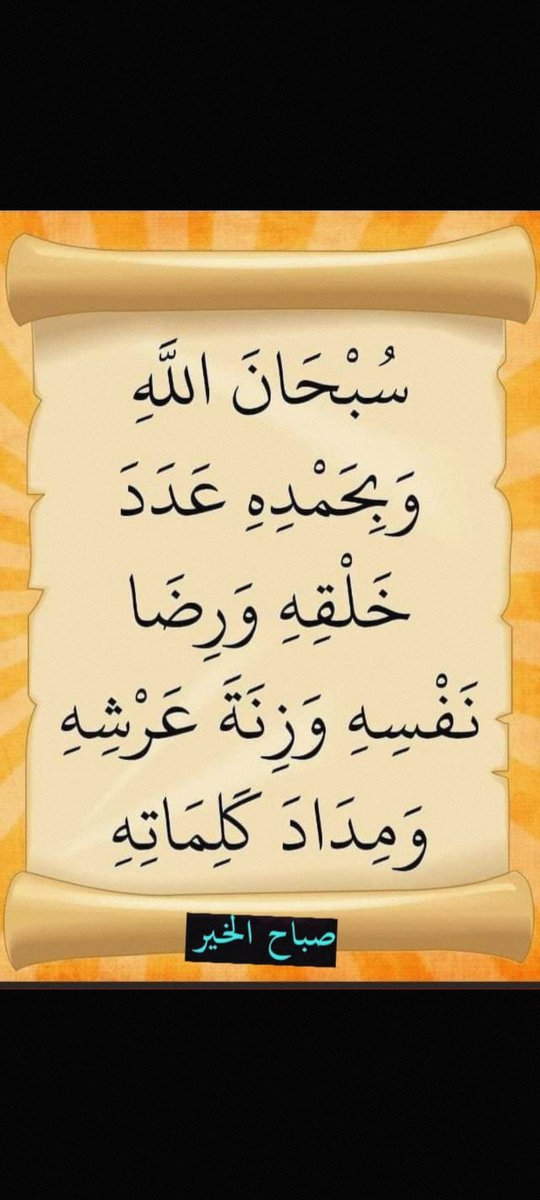 سُبْحَانَ اللَّهِ
وَبِحَمْدِهِ عَدَدَ
خَلْقِهِ وَرِضَا
نَفْسِهِ وَزِنَةَ عَرْشِهِ
وَمِدَادَ كَلِمَاتِهِ
صباح الخير